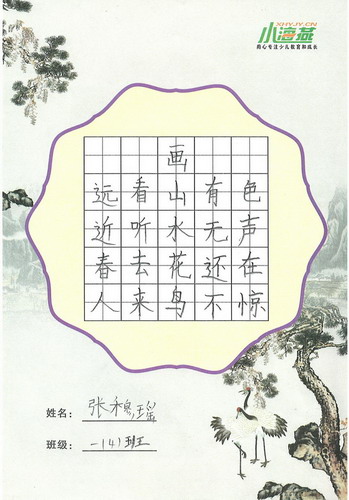 XHYJY.CN
小海燕
用心专注少儿教育和成长
画
远看山有色
近听水无声
春去花还在
人来鸟不惊
姓名：张穆瑶
班级：一(4)班